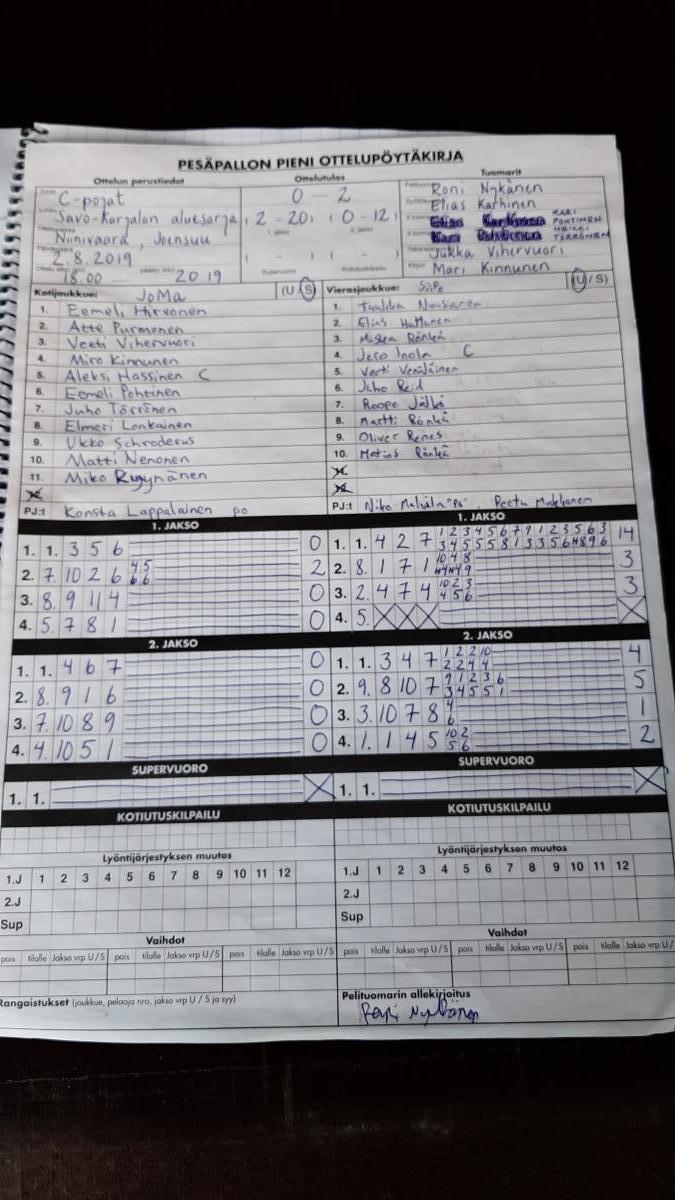 PESÄPALLON PIENI OTTELUPÖYTÄKIRJA
Ottelun perustiedot Ottelutulos Tuomarit
C-pojat 0 - 2 Roni Nykänen
Savo-Karjalan aluesarja (2 - 20) (0 - 12) Elias Karhinen
Niinivaara, Joensuu KARI POHTINEN
HEIKKI TÖRRÖNEN
2.8.2019 ( - ) ( - ) Jukka Vihervuori
18.00 20.19 Mari Kinnunen
Kotijoukkue: JoMa (U/S) Vierasjoukkue: SiiPe (U/S)
1. Eemeli Hirvonen 1. Tuukka Nousiainen
2. Atte Purmonen 2. Elias Huttunen
3. Veeti Vihervuori 3. Miska Rönkä
4. Miro Kinnunen 4. Jero Inola C
5. Aleksi Hassinen C 5. Veeti Venäläinen
6. Eemeli Pohtinen 6. Juho Reid
7. Juho Törrönen 7. Roope
8. Elmeri Lonkainen 8. Martti Rönkä
9. Ukko Schroderus 9. Oliver Renes
10. Matti Nenonen 10. Matias Rönkä
11. Miko Ryynänen
PJ:t Konsta Lappalainen po PJ:t Niko "po", Peetu Mukkonen
1. JAKSO 1. JAKSO
1. 1. 3 5 6 0 1. 1. 4 2 7 14
2. 7. 10 2 6 4 5 6 6 2 2. 8. 1 7 1 10 4 8 3
3. 8. 9 11 4 0 3. 2. 4 7 4 10 2 3 4 5 6 3
4. 5. 7 8 1 0 4. 5. X X X X
2. JAKSO 2. JAKSO
1. 1. 4 6 7 0 1. 1. 3 4 7 1 2 2 10 2 2 4 4 4
2. 8. 9 1 6 0 2. 9. 8 10 7 9 1 2 3 6 3 4 5 5 1 5
3. 7. 10 8 9 0 3. 3. 10 7 8 4 6 1
4. 4. 10 5 1 0 4. 1. 1 4 5 10 2 5 6 2
SUPERVUORO SUPERVUORO
1. 1. X 1. 1. X
KOTIUTUSKILPAILU KOTIUTUSKILPAILU
Lyöntijärjestyksen muutos Lyöntijärjestyksen muutos
1.J 1 2 3 4 5 6 7 8 9 10 11 12 1.J 1 2 3 4 5 6 7 8 9 10 11 12
2.J 2.J
Sup Sup
Vaihdot Vaihdot
pois tilalle Jakso vrp U/S pois tilalle Jakso vrp U/S pois tilalle Jakso vrp U/S pois tilalle Jakso vrp U/S pois tilalle Jakso vrp U/S pois tilalle Jakso vrp U/
Rangaistukset (joukkue, pelaaja nro, jakso vrp U / S ja syy) Pelituomarin allekirjoitus
Roni Nykänen